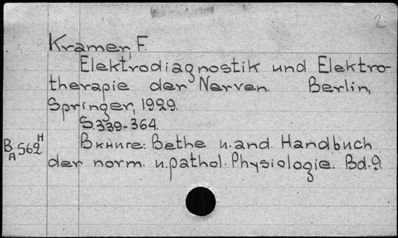 2
Kramer F.
Elektrodiagnostik und Elektro-
therapie der Nerven. Berlin,
Springer, 1929.
S. 339-364.
В книге: Bethe u. and. Handbuch
der norm. u. pathol. Physiologie. Bd. 9.
B 562 H
A